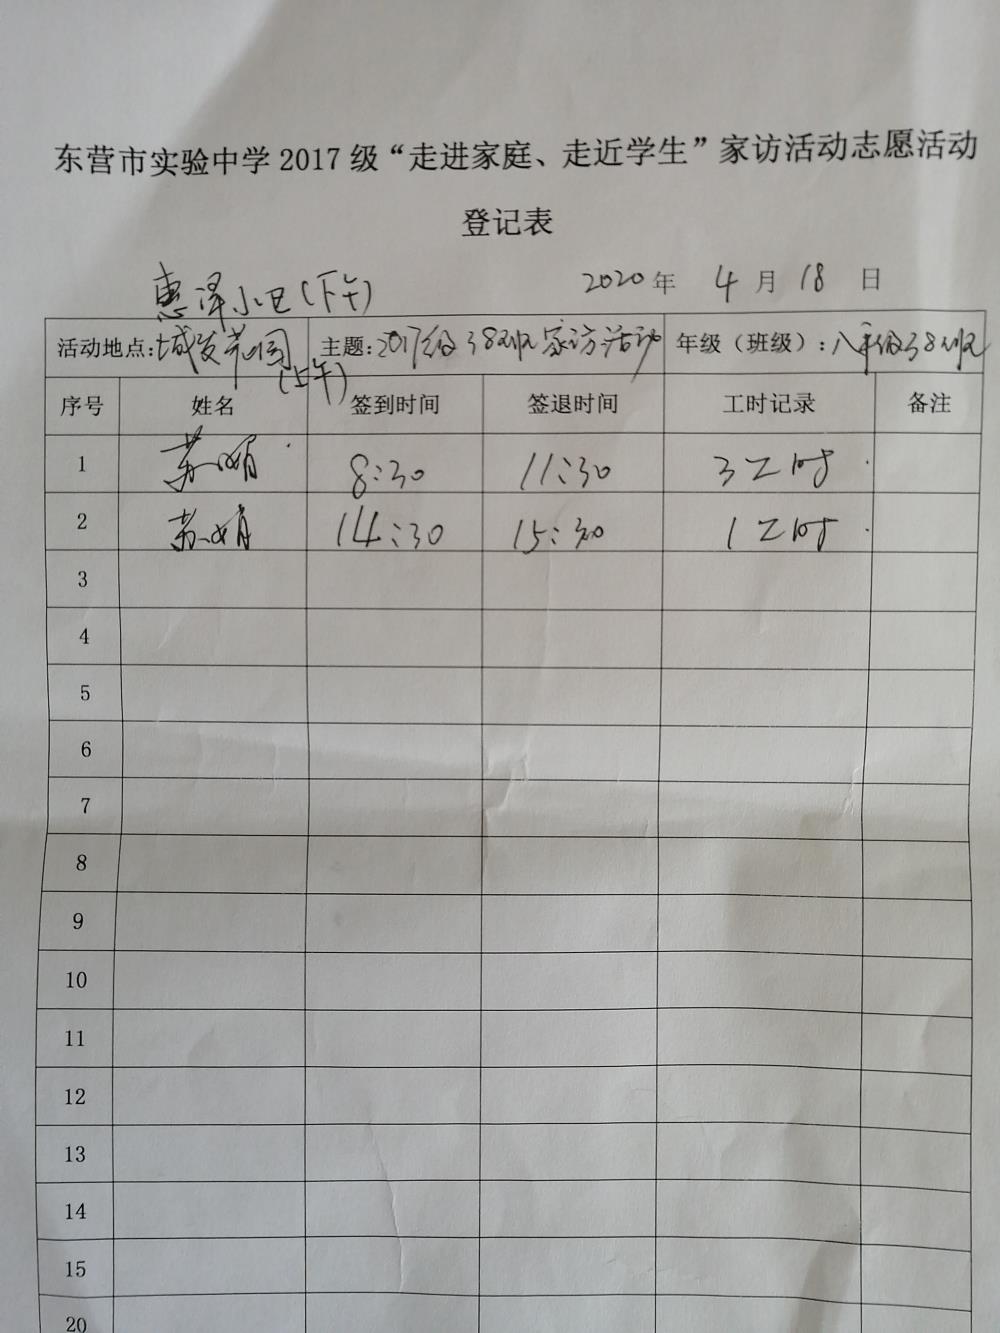 东营市实验中学2017级“走进家庭、走近学生”家访活动志愿活动
登记表
惠泽小区(下午)
2020年 4月18日
活动地点:城发花园(上午) 主题:2017级38班家访活动 年级（班级）:八年级38班
序号 姓名 签到时间 签退时间 工时记录 备注
1 苏娟 8:30 11:30 3工时
2 苏娟 14:30 15:30 1工时
3
4
5
6
7
8
9
10
11
12
13
14
15
20